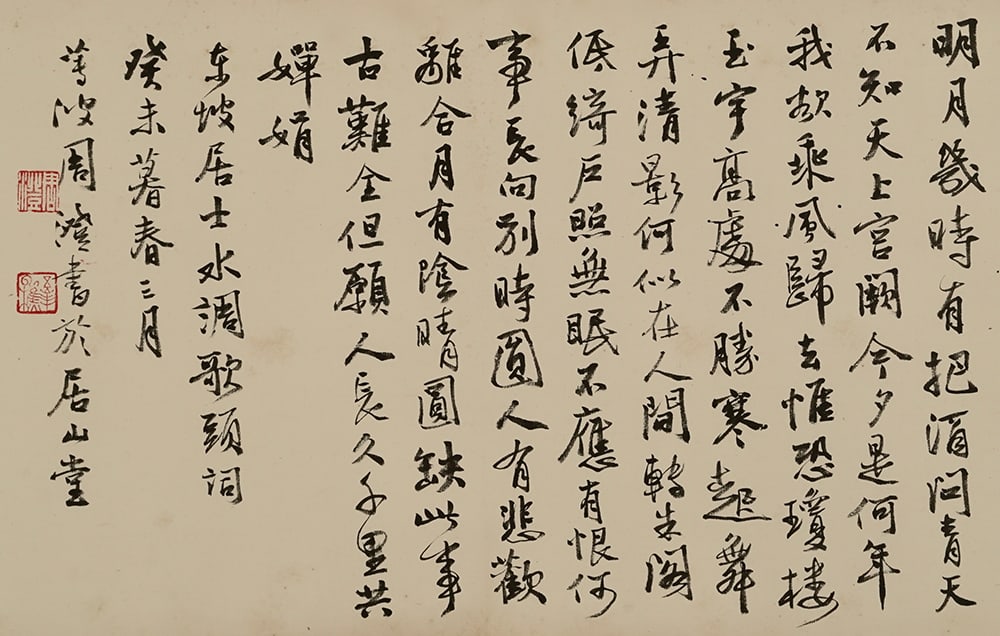 明月幾時有把酒問青天
不知天上宮闕今夕是何年
我欲乘風歸去惟恐瓊樓
玉宇高處不勝寒起舞
弄清影何似在人間轉朱閣
低綺戶照無眠不應有恨何
事長向別時圓人有悲歡
離合月有陰晴圓缺此事
古難全但願人長久千里共
嬋娟
東坡居士水調歌頭詞
癸未暮春三月
蓴波周澄書於居山堂
周澄